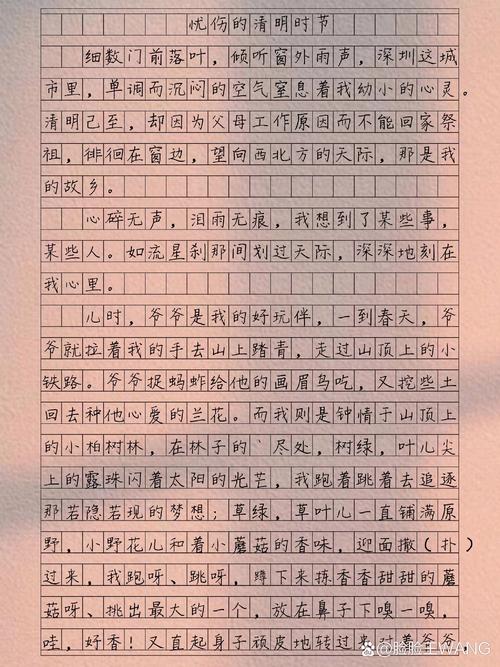 忧伤的清明时节
细数门前落叶，倾听窗外雨声，深圳这城
市里，单调而沉闷的空气窒息着我幼小的心灵。
清明己至，却因为父母工作原因而不能回家祭
祖，徘徊在窗边，望向西北方的天际，那是我
的故乡。
心碎无声，泪雨无痕，我想到了某些事，
某些人。如流星刹那间划过天际，深深地刻在
我心里。
儿时，爷爷是我的好玩伴，一到春天，爷
爷就拉着我的手去山上踏青，走过山顶上的小
铁路。爷爷捉蚂蚱给他的画眉鸟吃，又挖些土
回去种他心爱的兰花。而我则是钟情于山顶上
的小柏树林，在林子的尽处，树绿，叶儿尖
上的露珠闪着太阳的光芒，我跑着跳着去追逐
那若隐若现的梦想；草绿，草叶儿一直铺满原
野，小野花儿和着小蘑菇的香味，迎面撒（扑）
过来，我跑呀、跳呀，蹲下来拣香香甜甜的蘑
菇呀、挑出最大的一个，放在鼻子下嗅一嗅，
哇，好香！又直起身子顽皮地转过来对着爷爷，
@脸脸王WANG